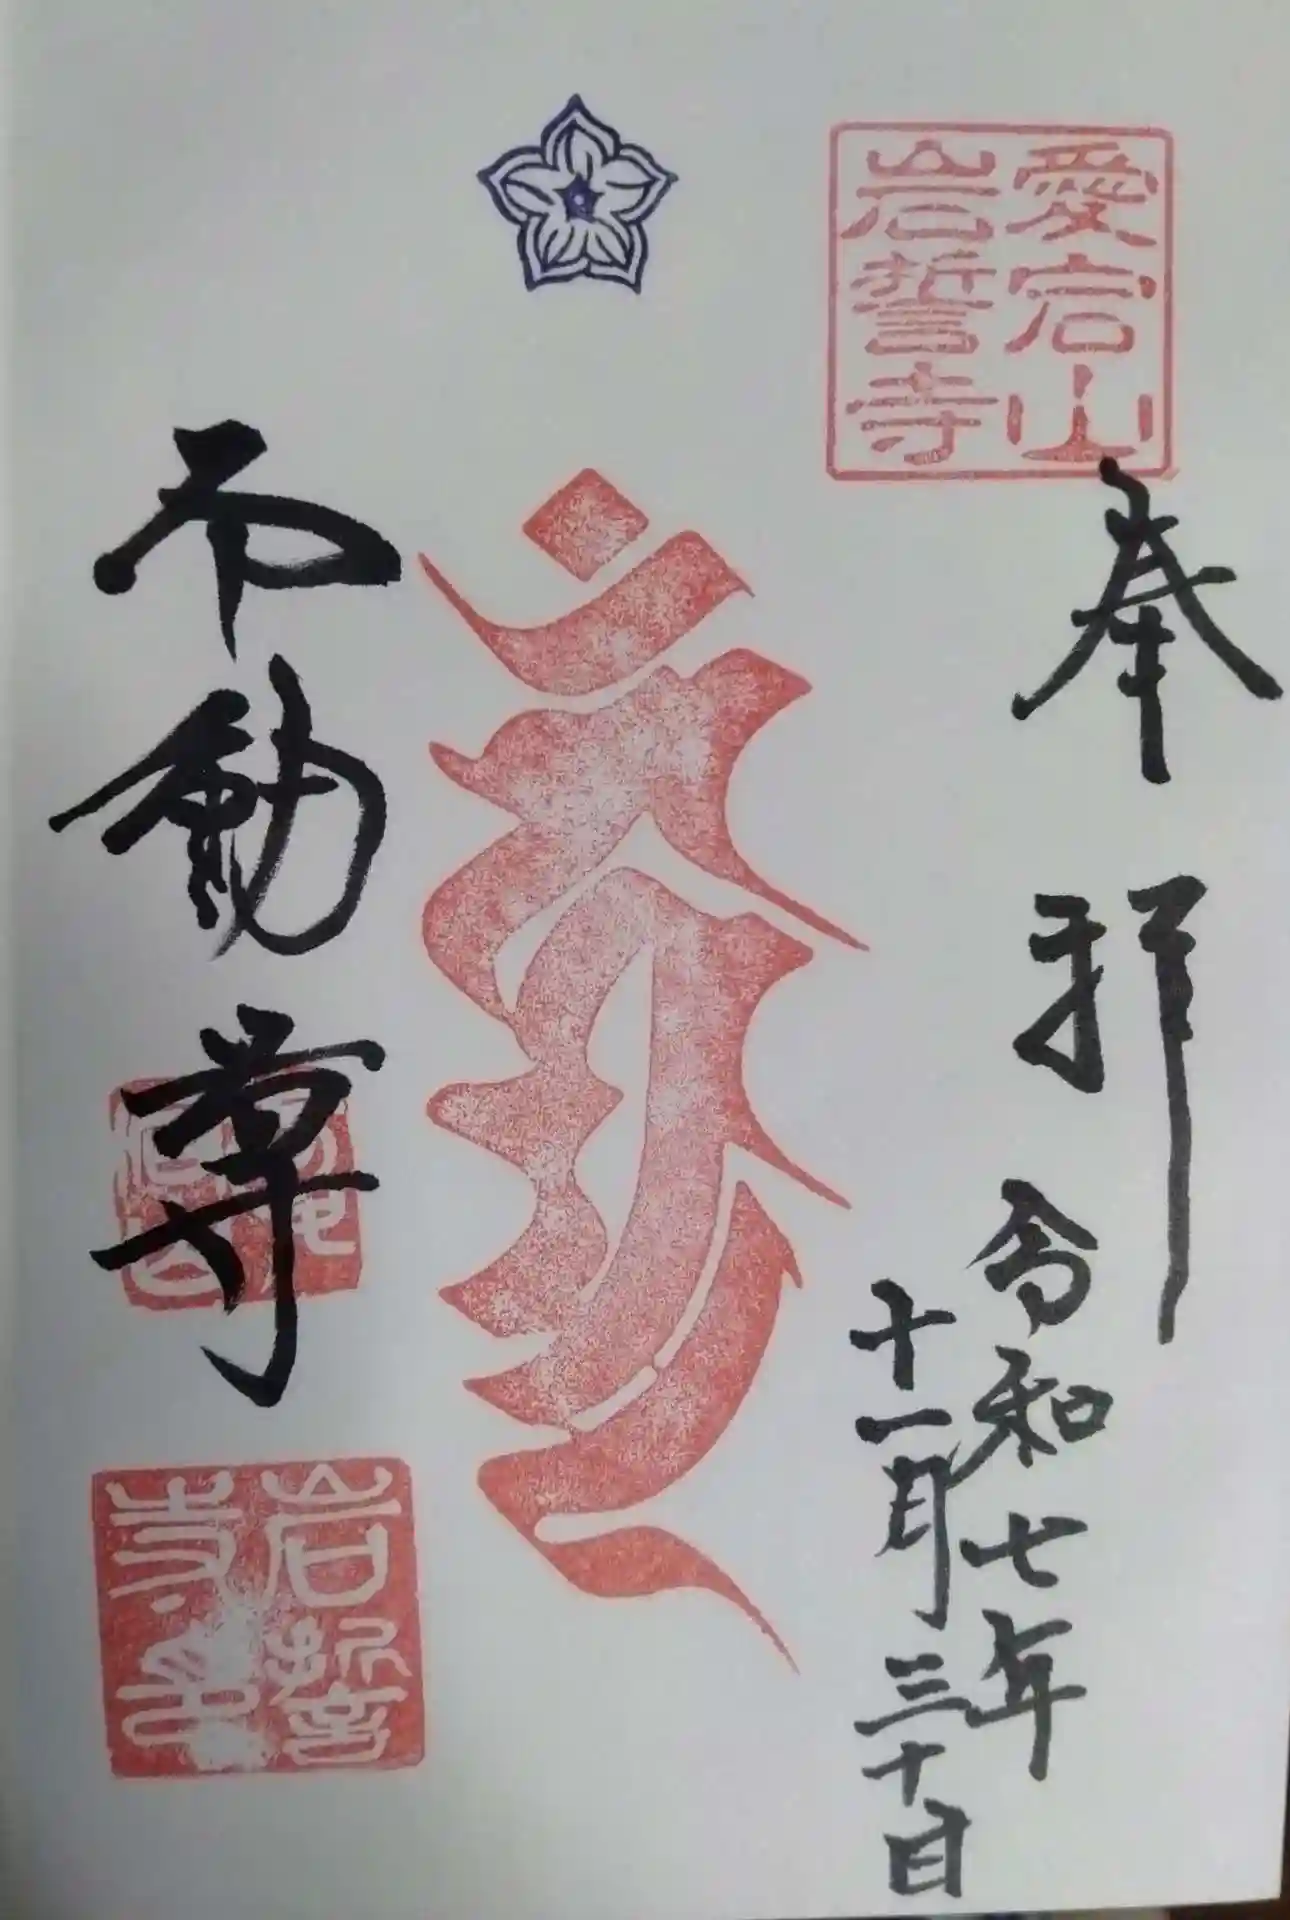 愛宕山
岩誓寺
奉拝
令和七年
十一月三十日
不動尊